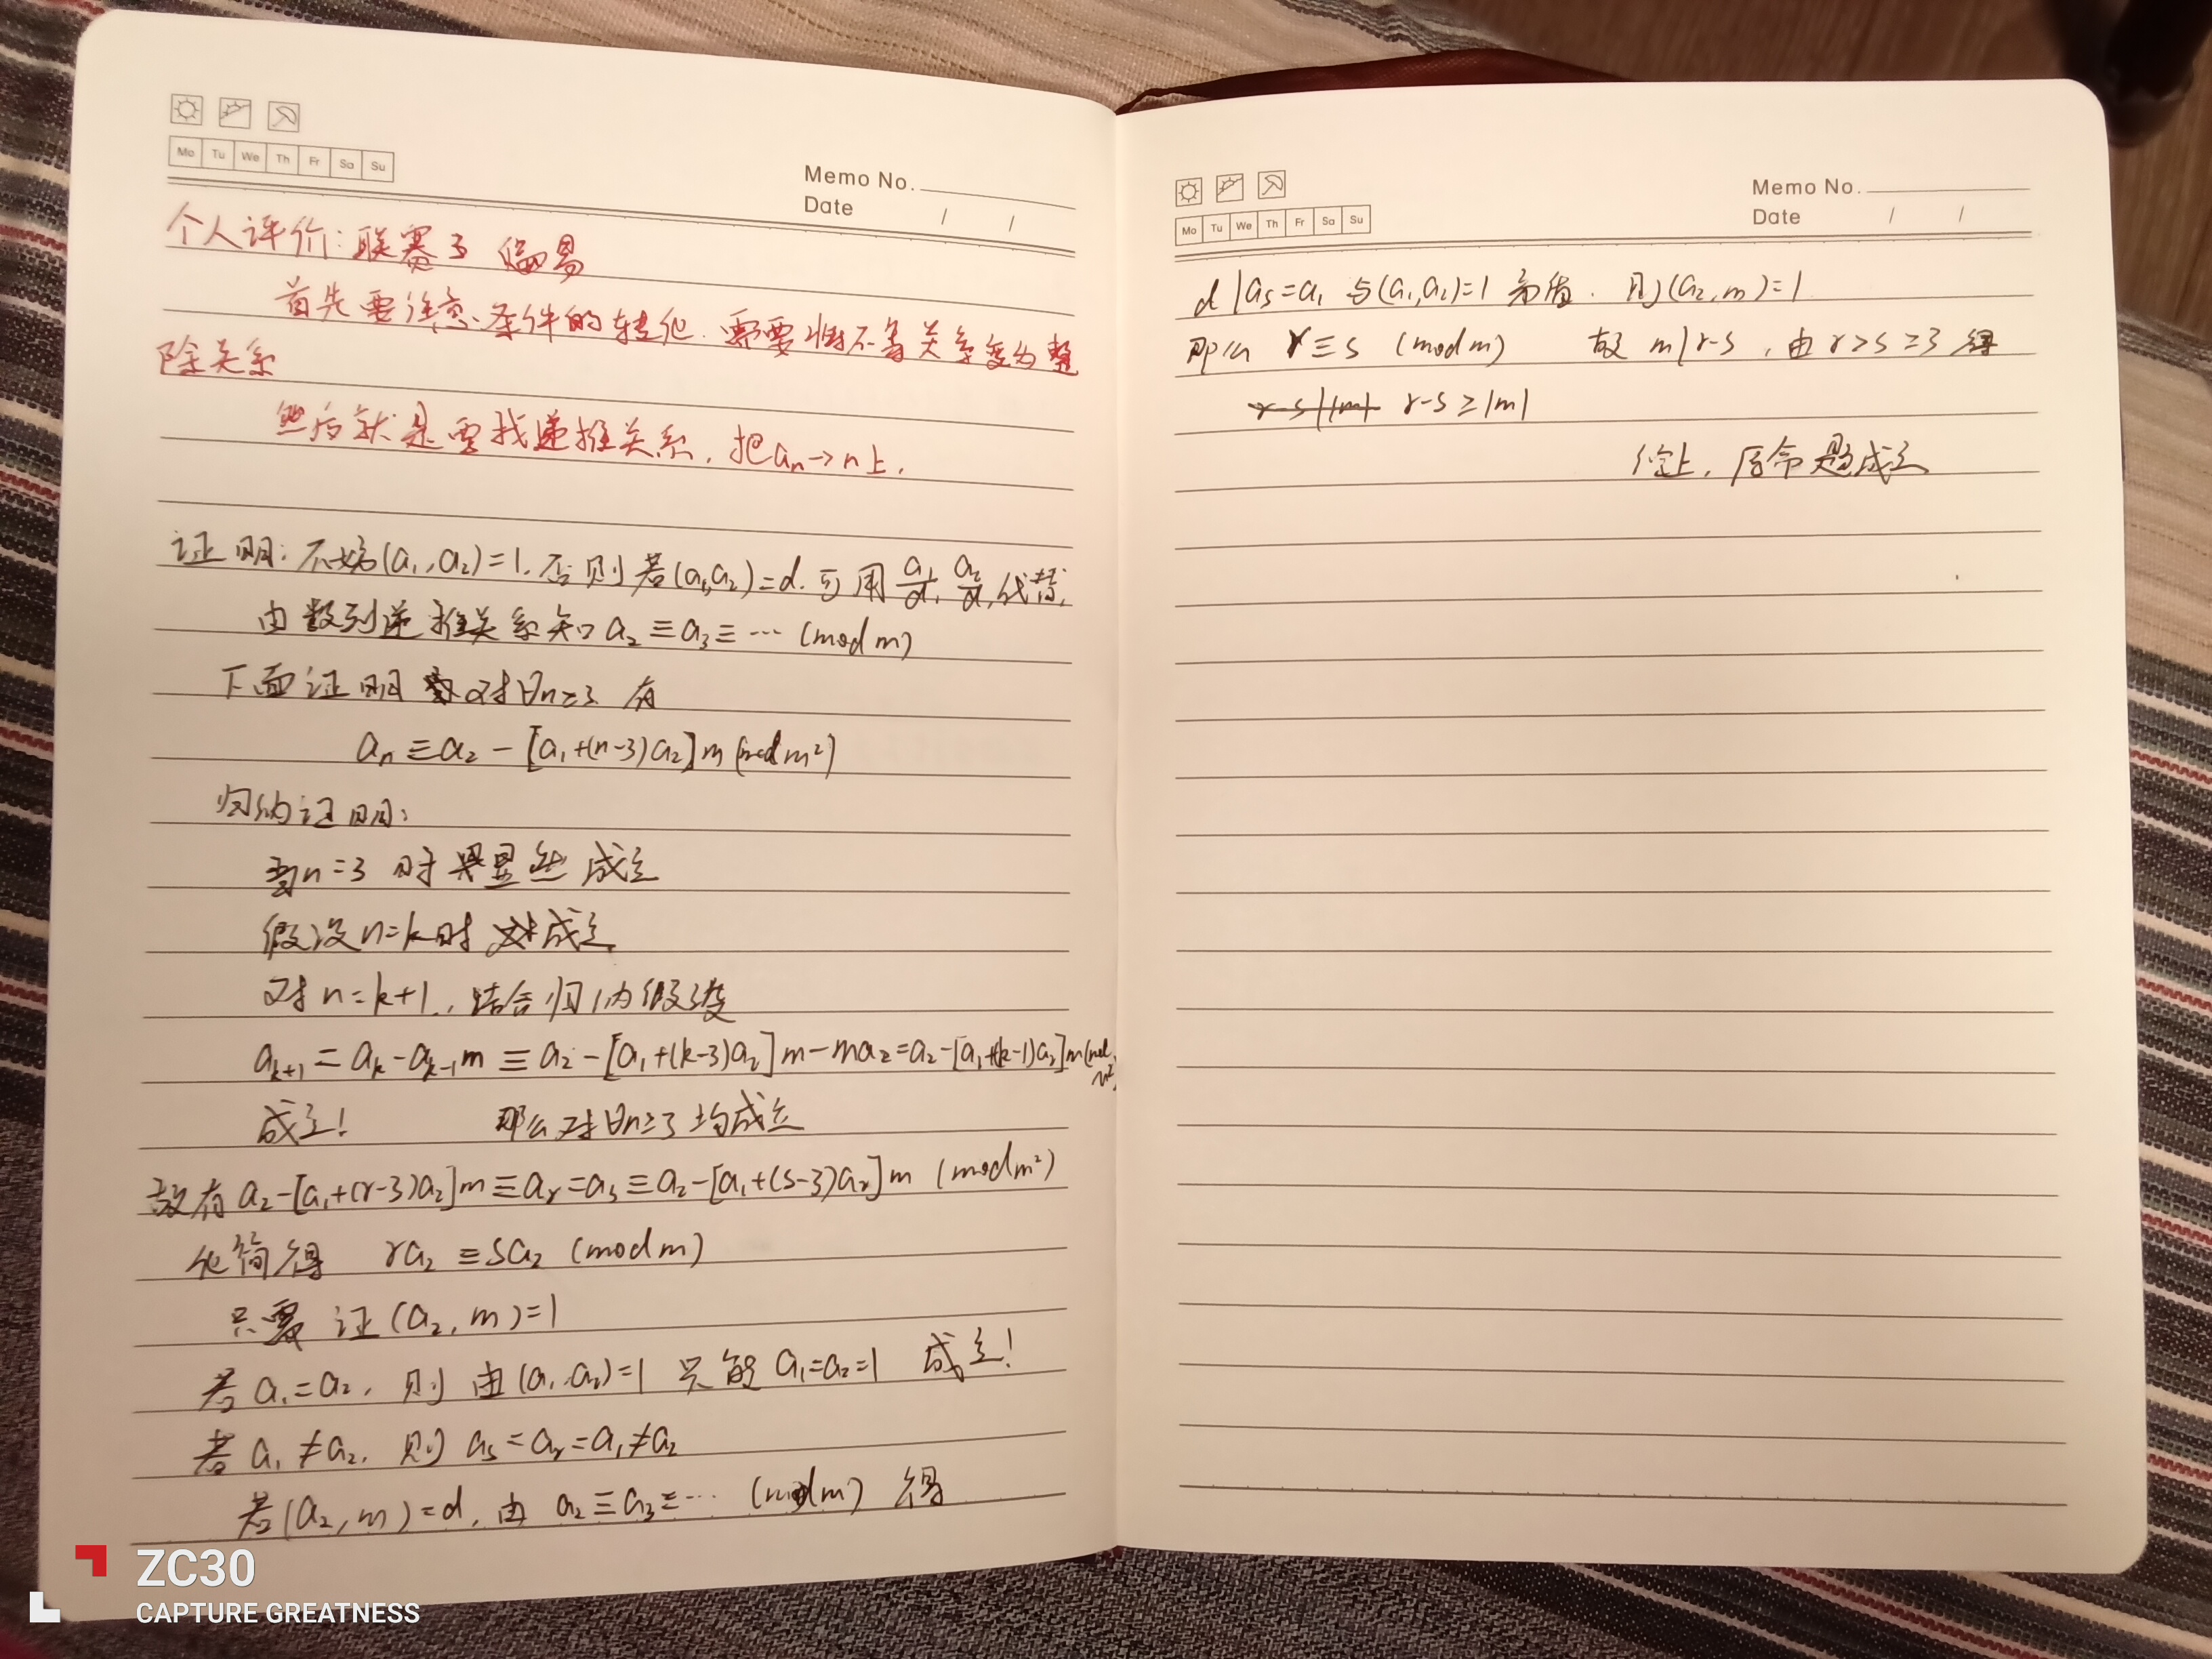 Mo Tu We Th Fr Sa Su
Memo No.
Date / /
个人评价:联赛3 偏易
首先要注意条件的转化.需要将不等关系变为整
除关系
然后就是要找递推关系,把aₙ→n上.
证明:不妨(a₁,a₂)=1.否则若(a₁,a₂)=d.可用a₁/d,a₂/d代替.
由数列递推关系知a₂≡a₃≡⋯ (mod m)
下面证明对∀n≥3 有
aₙ≡a₂-[a₁+(n-3)a₂]m(mod m²)
归纳证明:
当n=3时显然成立
假设n=k时成立
对n=k+1,结合归纳假设
aₖ₊₁=aₖ-aₖ₋₁m≡a₂-[a₁+(k-3)a₂]m-ma₂=a₂-[a₁+(k-1)a₂]m(mod m²)
成立! 那么对∀n≥3均成立
故有a₂-[a₁+(r-3)a₂]m≡aᵣ=aₛ≡a₂-[a₁+(s-3)a₂]m (mod m²)
化简得 ra₂≡sa₂ (mod m)
只要证(a₂,m)=1
若a₁=a₂,则由(a₁,a₂)=1只能a₁=a₂=1 成立!
若a₁≠a₂,则aₛ=aᵣ=a₁≠a₂
若(a₂,m)=d,由 a₂≡a₃≡⋯ (mod m) 得
Mo Tu We Th Fr Sa Su
Memo No.
Date / /
d|aₛ=a₁与(a₁,a₂)=1矛盾.则(a₂,m)=1
那么 r≡s (mod m) 故 m|r-s,由r>s≥3得
r-s||m| r-s≥|m|
综上,原命题成立
ZC30
CAPTURE GREATNESS